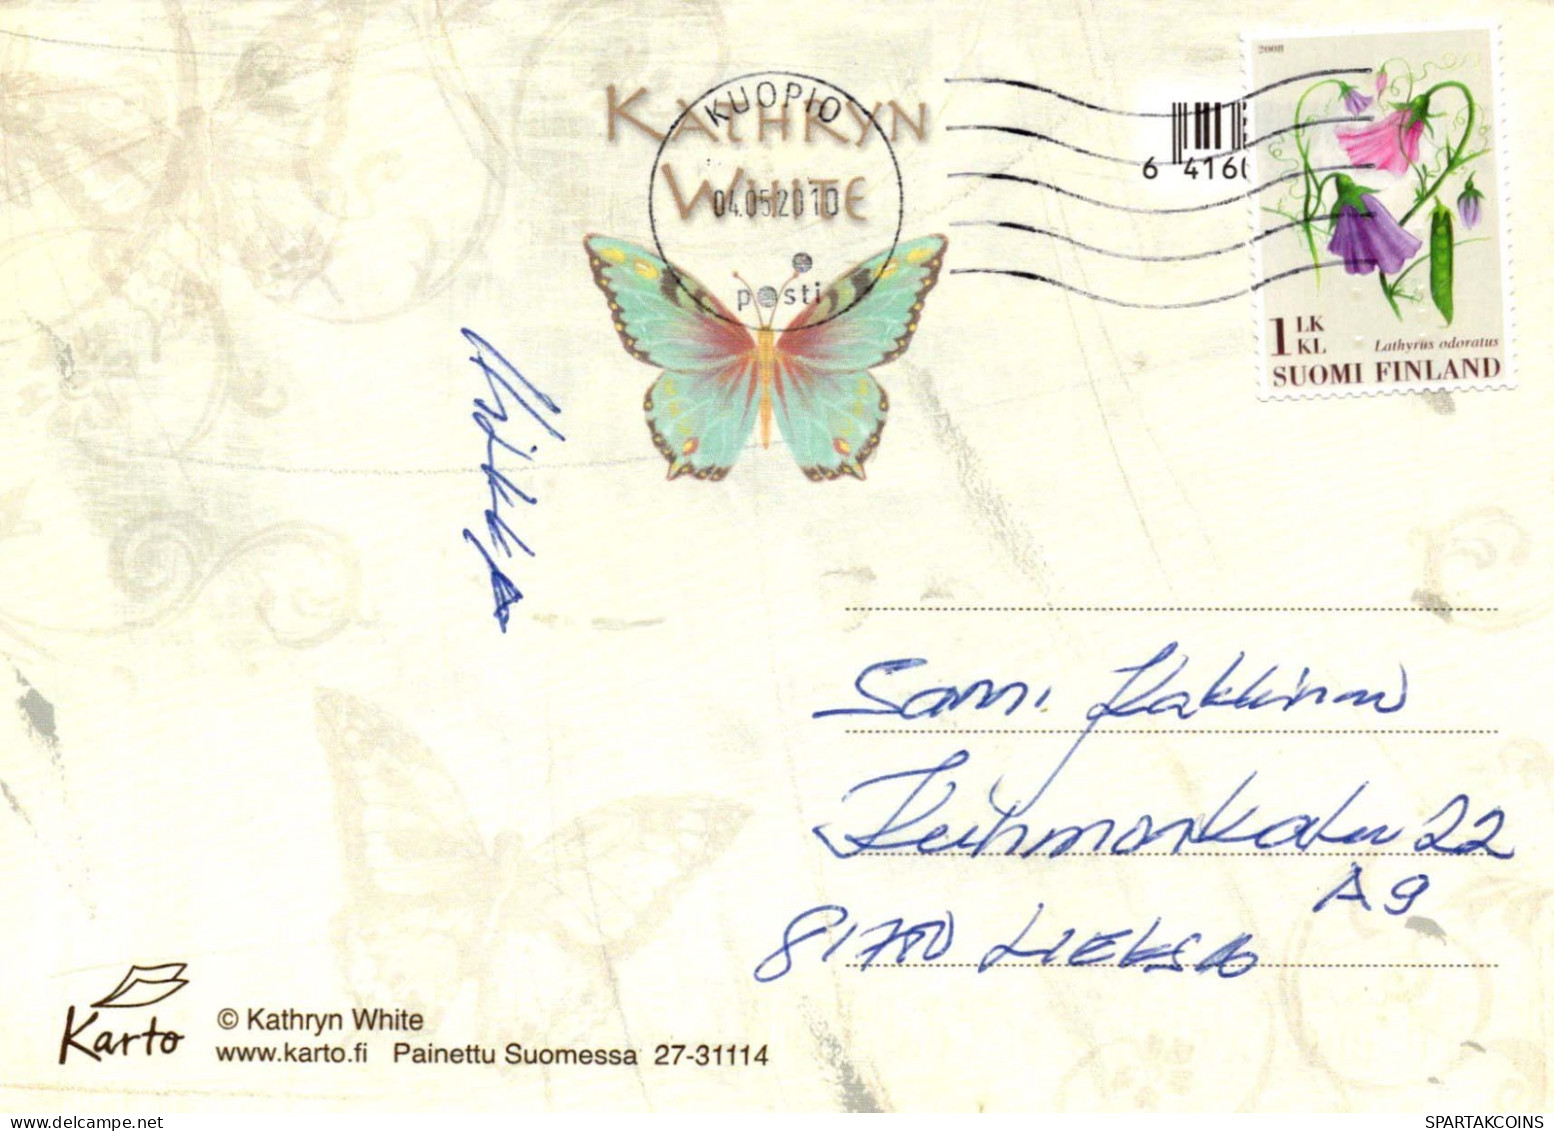 KATHRYN
WHITE
KUOPIO
04.05.2010
posti
6 4160
2008
1 LK
KL
Lathyrus odoratus
SUOMI FINLAND
Sami Kakkinen
Kuhmonkatu 22
A 9
81700 LIEKSA
Karto
© Kathryn White
www.karto.fi Painettu Suomessa 27-31114
SPARTAKCOINS